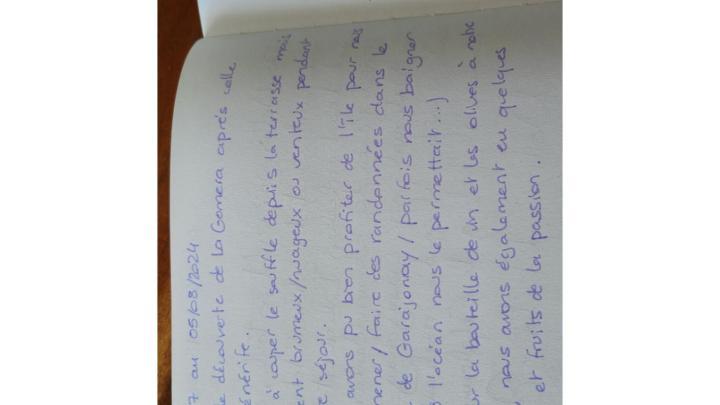 7 au 05/08/2024
e découverte de la Gomera après celle
énérife.
à couper le souffle depuis la terrasse mais
ent brumeux/nuageux ou venteux pendant
e séjour.
avons pu bien profiter de l'île pour nous
mener/ faire des randonnées dans le
de Garajonay/ parfois nous baigner
l'océan nous le permettait...)
ur la bouteille de vin et les olives à notre
nous avons également eu quelques
et fruits de la passion.